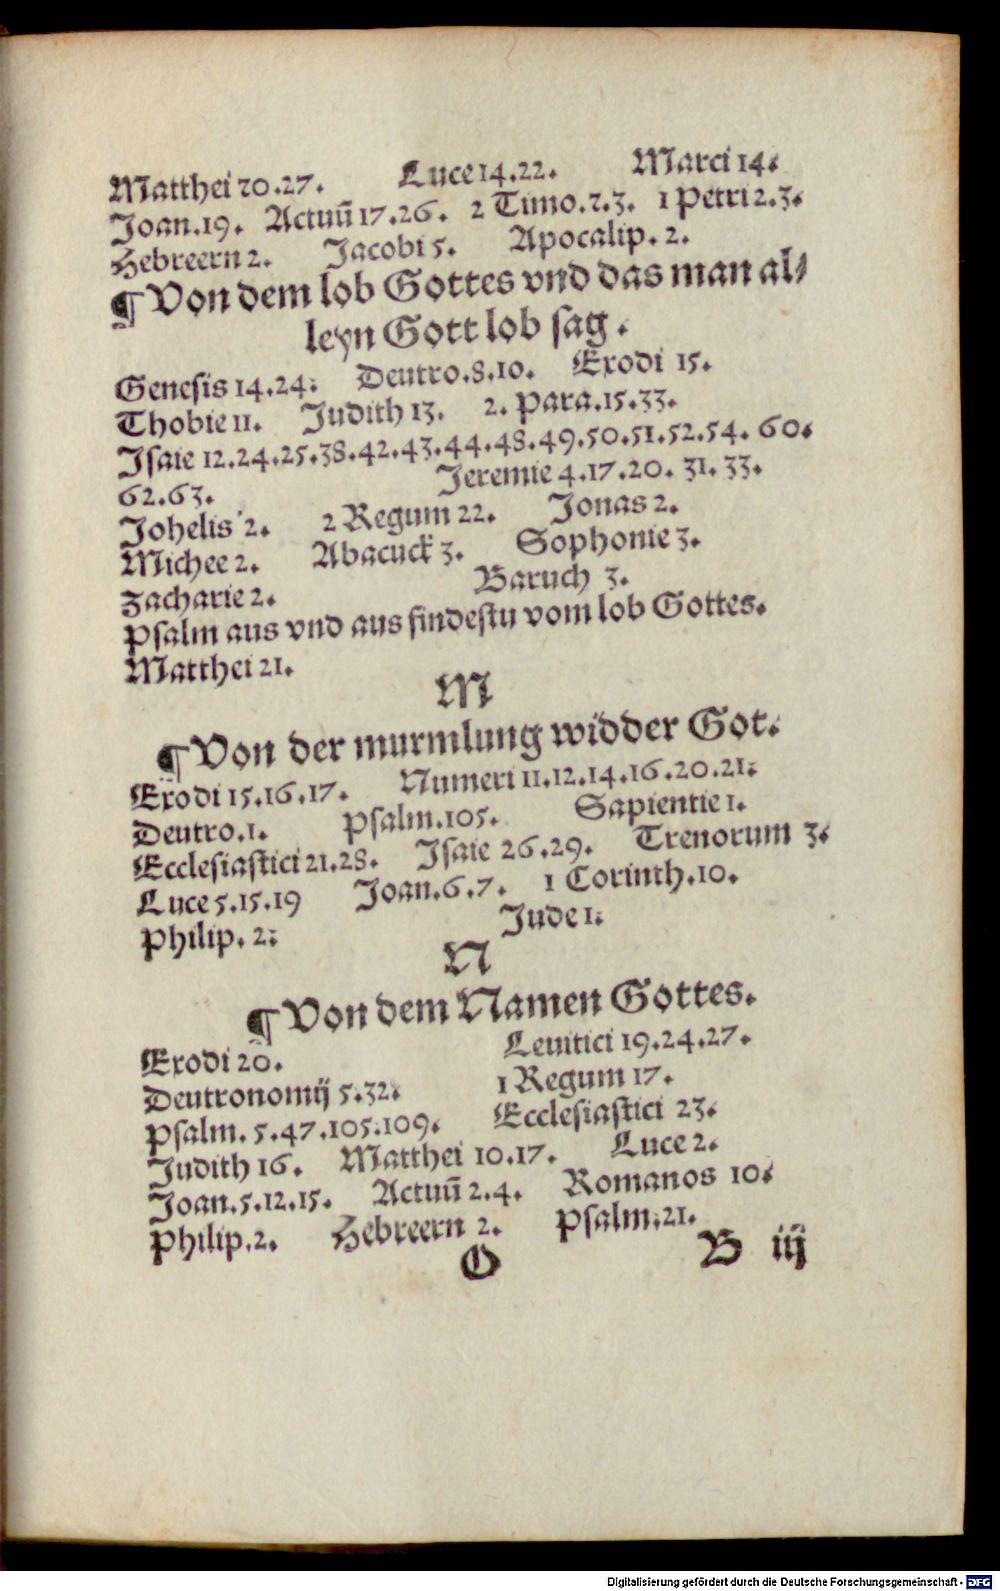 Matthei 20.27. Luce 14.22. Marci 14.
Joan.19. Actuū 17.26. 2 Timo.2.3. 1 Petri 2.3.
Hebreern 2. Jacobi 5. Apocalip. 2.
¶ Von dem lob Gottes vnd das man al⸗
leyn Gott lob sag.
Genesis 14.24. Deutro.8.10. Exodi 15.
Thobie 11. Judith 13. 2. Para.15.33.
Isaie 12.24.25.38.42.43.44.48.49.50.51.52.54. 60.
62.63. Jeremie 4.17.20. 31. 33.
Johelis 2. 2 Regum 22. Jonas 2.
Michee 2. Abacuck 3. Sophonie 3.
Zacharie 2. Baruch 3.
Psalm aus vnd aus findestu vom lob Gottes.
Matthei 21.
M
¶ Von der murmlung widder Got.
Exodi 15.16.17. Numeri 11.12.14.16.20.21.
Deutro.1. Psalm.105. Sapientie 1.
Ecclesiastici 21.28. Isaie 26.29. Trenorum 3.
Luce 5.15.19 Joan.6.7. 1 Corinth.10.
Philip. 2. Jude 1.
N
¶ Von dem Namen Gottes.
Exodi 20. Leuitici 19.24.27.
Deutronomij 5.32. 1 Regum 17.
Psalm. 5.47.105.109. Ecclesiastici 23.
Judith 16. Matthei 10.17. Luce 2.
Joan.5.12.15. Actuū 2.4. Romanos 10.
Philip.2. Hebreern 2. Psalm.21.
O B iij
Digitalisierung gefördert durch die Deutsche Forschungsgemeinschaft - DFG